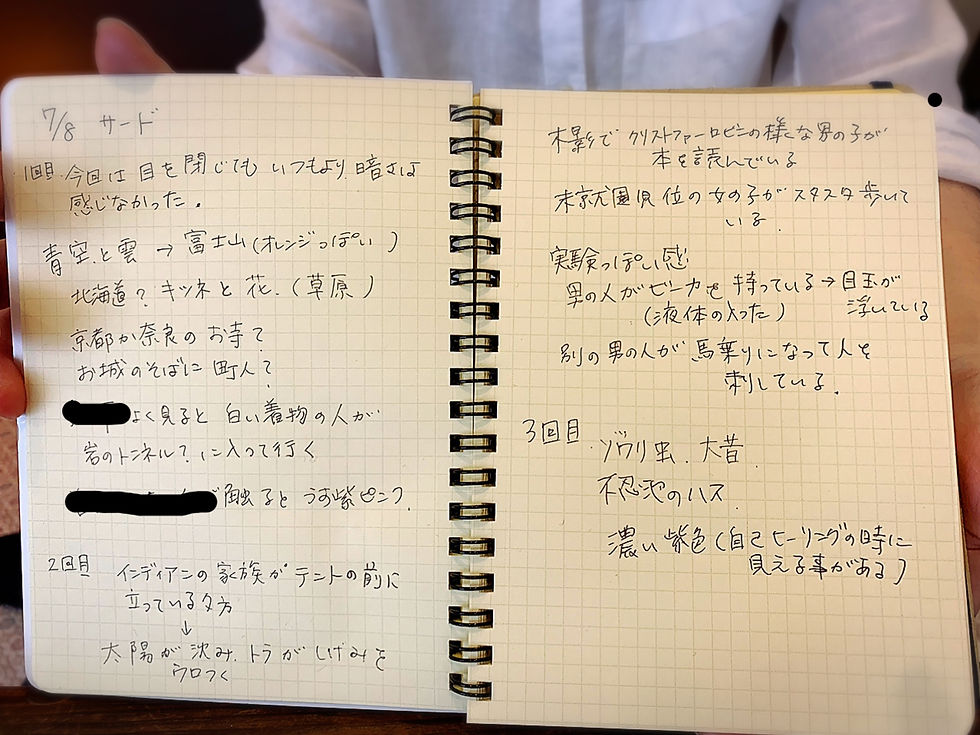 7/8 サード
1回目 今回は目を閉じてもいつもより暗さは
感じなかった。
青空と雲 → 富士山(オレンジっぽい)
北海道? キツネと花.(草原)
京都か奈良のお寺で
お城のそばに町人?
よく見ると 白い着物の人が
岩のトンネル?に入って行く
触ると うす紫ピンク.
2回目 インディアンの家族がテントの前に
立っている夕方
↓
太陽が沈み.トラがしげみを
ウロつく
木影で クリストファーロビンの様な男の子が
本を読んでいる
未就園児位の女の子がスタスタ歩いて
いる.
実験っぽい感
男の人がビーカを持っている→目玉が
(液体の入った) 浮いている
別の男の人が馬乗りになって人を
刺している.
3回目 ゾウリ虫.大昔.
不忍池のハス
濃い紫色(自己ヒーリングの時に
見える事がある)